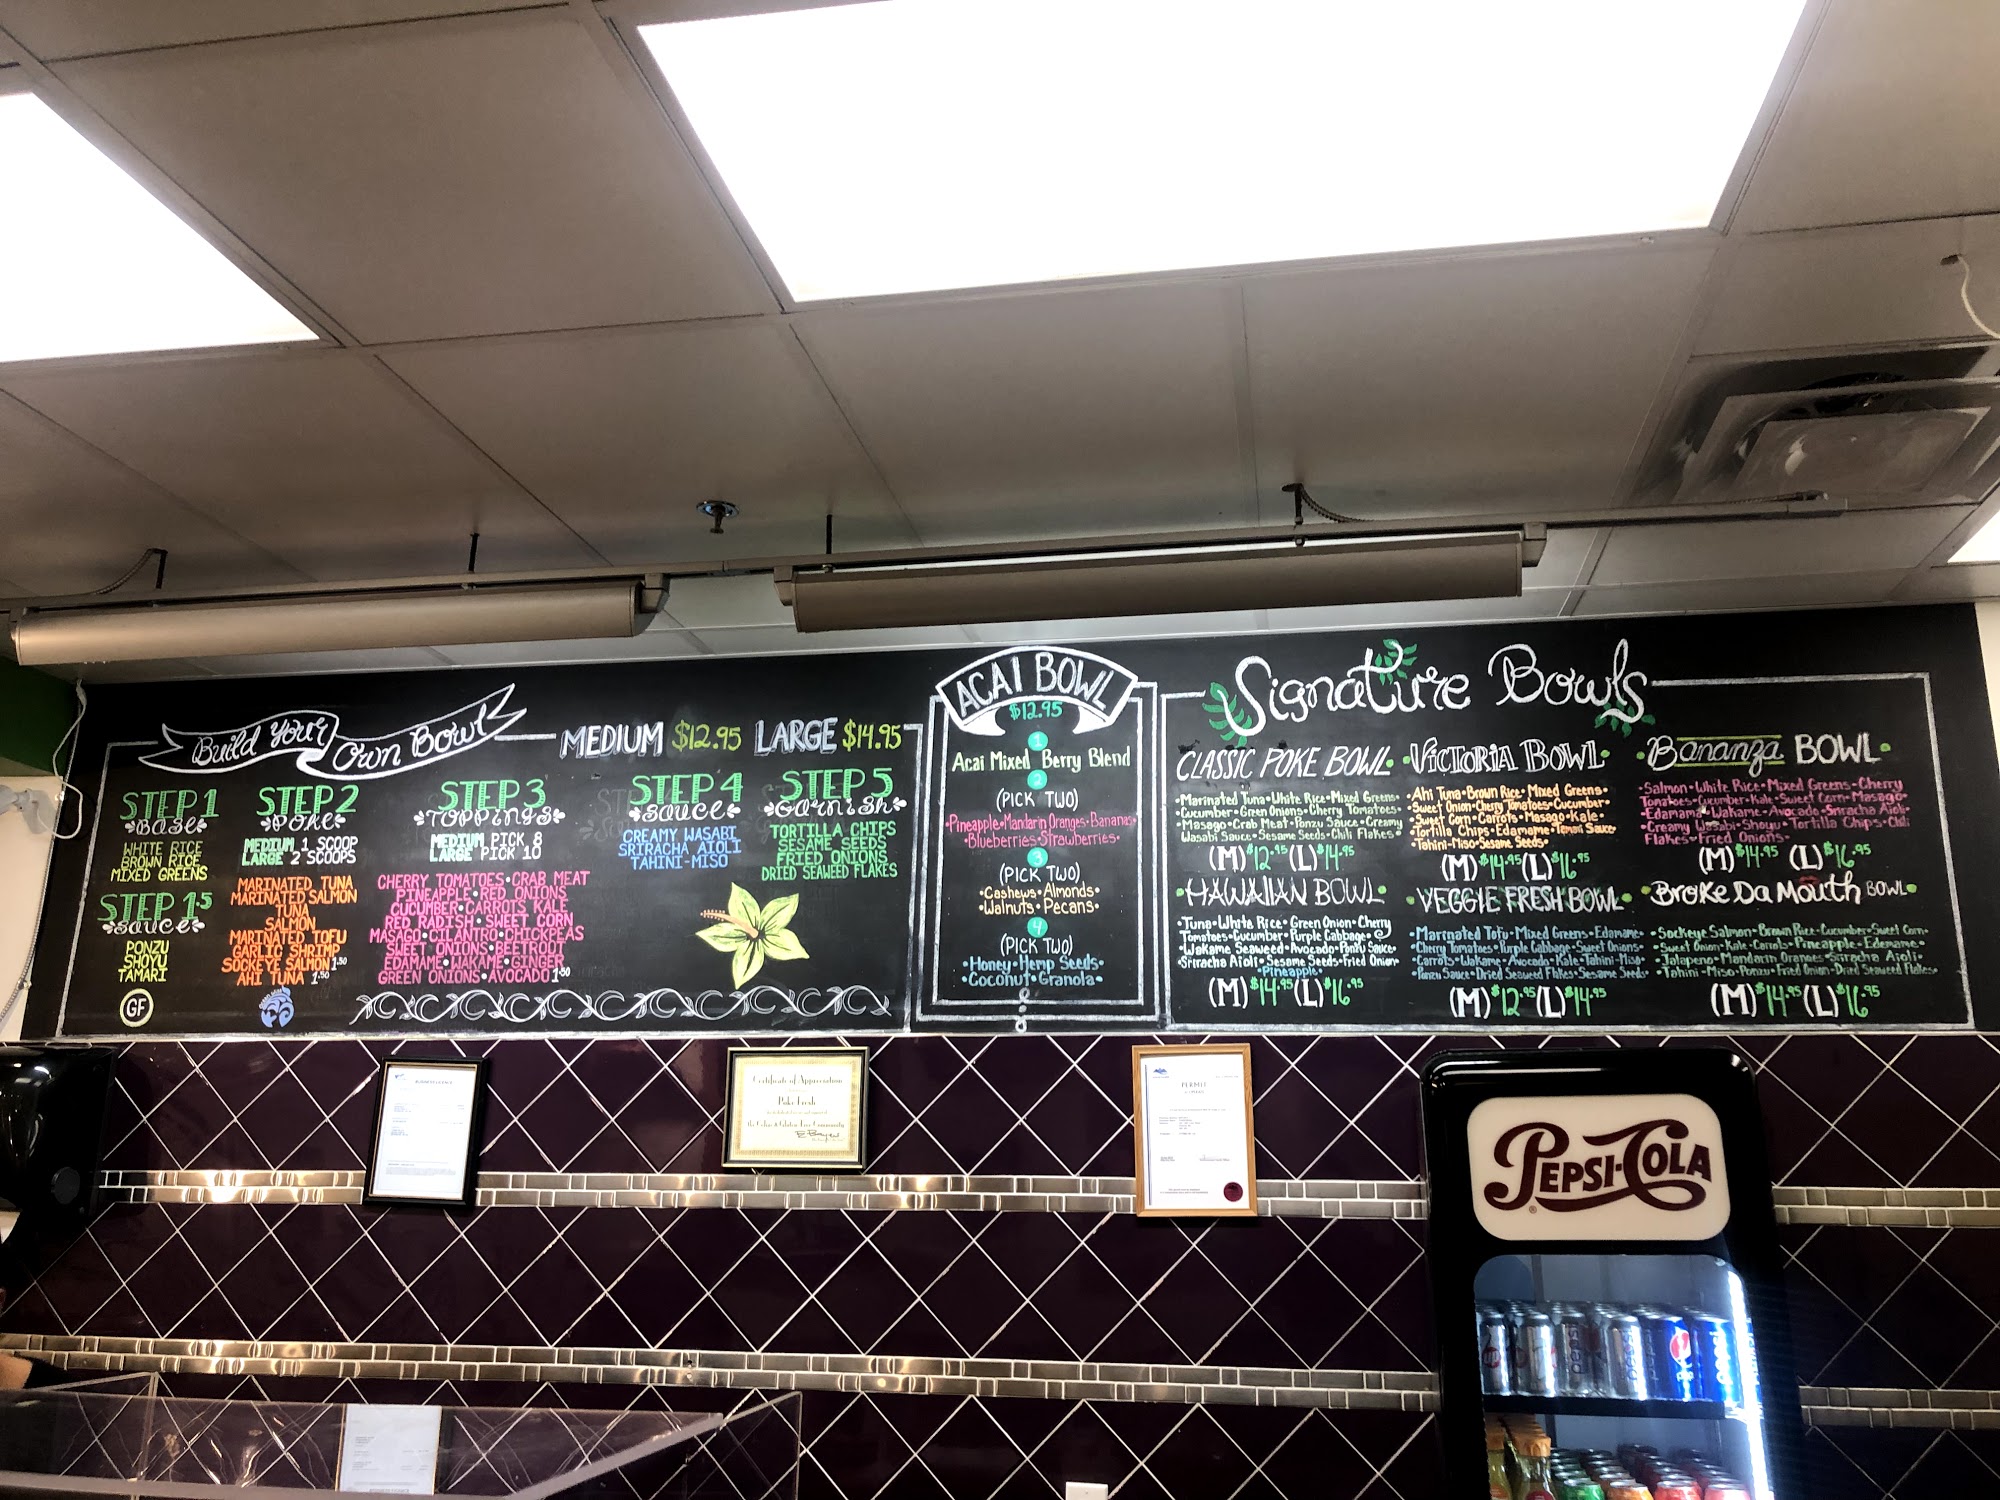 Build Your Own Bowl
MEDIUM $12.95 LARGE $14.95
STEP 1
BASE
WHITE RICE
BROWN RICE
MIXED GREENS
STEP 1.5
SAUCE
PONZU
SHOYU
TAMARI
GF
STEP 2
POKE
MEDIUM 1 SCOOP
LARGE 2 SCOOPS
MARINATED TUNA
MARINATED SALMON
TUNA
SALMON
MARINATED TOFU
GARLIC SHRIMP
SOCKEYE SALMON 1.50
AHI TUNA 1.50
STEP 3
TOPPINGS
MEDIUM PICK 8
LARGE PICK 10
CHERRY TOMATOES•CRAB MEAT
PINEAPPLE•RED ONIONS
CUCUMBER•CARROTS KALE
RED RADISH•SWEET CORN
MASAGO•CILANTRO•CHICKPEAS
SWEET ONIONS•BEETROOT
EDAMAME•WAKAME•GINGER
GREEN ONIONS•AVOCADO 1.50
STEP 4
SAUCE
CREAMY WASABI
SRIRACHA AIOLI
TAHINI-MISO
STEP 5
GARNISH
TORTILLA CHIPS
SESAME SEEDS
FRIED ONIONS
DRIED SEAWEED FLAKES
ACAI BOWL
$12.95
1
Acai Mixed Berry Blend
2
(PICK TWO)
•Pineapple•Mandarin Oranges•Bananas
•Blueberries•Strawberries•
3
(PICK TWO)
•Cashews•Almonds•
•Walnuts•Pecans•
4
(PICK TWO)
•Honey•Hemp Seeds•
•Coconut•Granola•
Signature Bowls
CLASSIC POKE BOWL•
•Marinated Tuna•White Rice•Mixed Greens•
Cucumber•Green Onions•Cherry Tomatoes•
•Masago•Crab Meat•Ponzu Sauce•Creamy
Wasabi Sauce•Sesame Seeds•Chili Flakes•
(M)$12.95(L)$14.95
•VICTORIA BOWL•
Ahi Tuna•Brown Rice•Mixed Greens•
•Sweet Onion•Cherry Tomatoes•Cucumber•
Sweet Corn•Carrots•Masago•Kale•
•Tortilla Chips•Edamame•Ponzu Sauce
•Tahini-Miso•Sesame Seeds•
(M)$14.95(L)$16.95
•Bananza BOWL•
•Salmon•White Rice•Mixed Greens•Cherry
Tomatoes•Cucumber•Kale•Sweet Corn•Masago
•Edamama•Wakame•Avocado•Sriracha Aioli
•Creamy Wasabi•Shoyu•Tortilla Chips•Chili
Flakes•Fried Onions•
(M)$14.95 (L)$16.95
•HAWAIIAN BOWL•
•Tuna•White Rice•Green Onion•Cherry
Tomatoes•Cucumber•Purple Cabbage•
Wakame Seaweed•Avocado•Ponzu Sauce•
•Sriracha Aioli•Sesame Seeds•Fried Onion•
•Pineapple•
(M)$14.95(L)$16.95
•VEGGIE FRESH BOWL•
•Marinated Tofu•Mixed Greens•Edamame
•Cherry Tomatoes•Purple Cabbage•Sweet Onions•
•Carrots•Wakame•Avocado•Kale•Tahini-Miso
•Ponzu Sauce•Dried Seaweed Flakes•Sesame Seeds•
(M)$12.95(L)$14.95
•Broke Da Mouth BOWL•
•Sockeye Salmon•Brown Rice•Cucumber•Sweet Corn•
•Sweet Onion•Kale•Carrots•Pineapple•Edemame•
•Jalapeno•Mandarin Oranges•Sriracha Aioli•
•Tahini-Miso•Ponzu•Fried Onion•Dried Seaweed Flakes•
(M)$14.95(L)$16.95
BUSINESS LICENCE
Certificate of Appreciation
Poke Fresh
PERMIT
PEPSI-COLA
®
pepsi